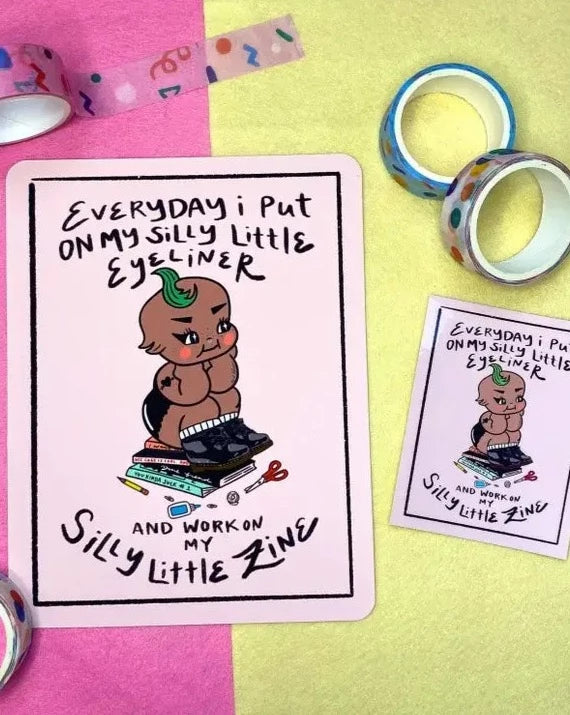 EVERYDAY i Put
ON MY SiLLY Little
EYELINER
AND WORK ON
MY
SiLLY Little Zine
EVERYDAY i Pu
ON MY SiLLY Little
EYELINER
AND WORK ON
MY
SiLLY Little Zine